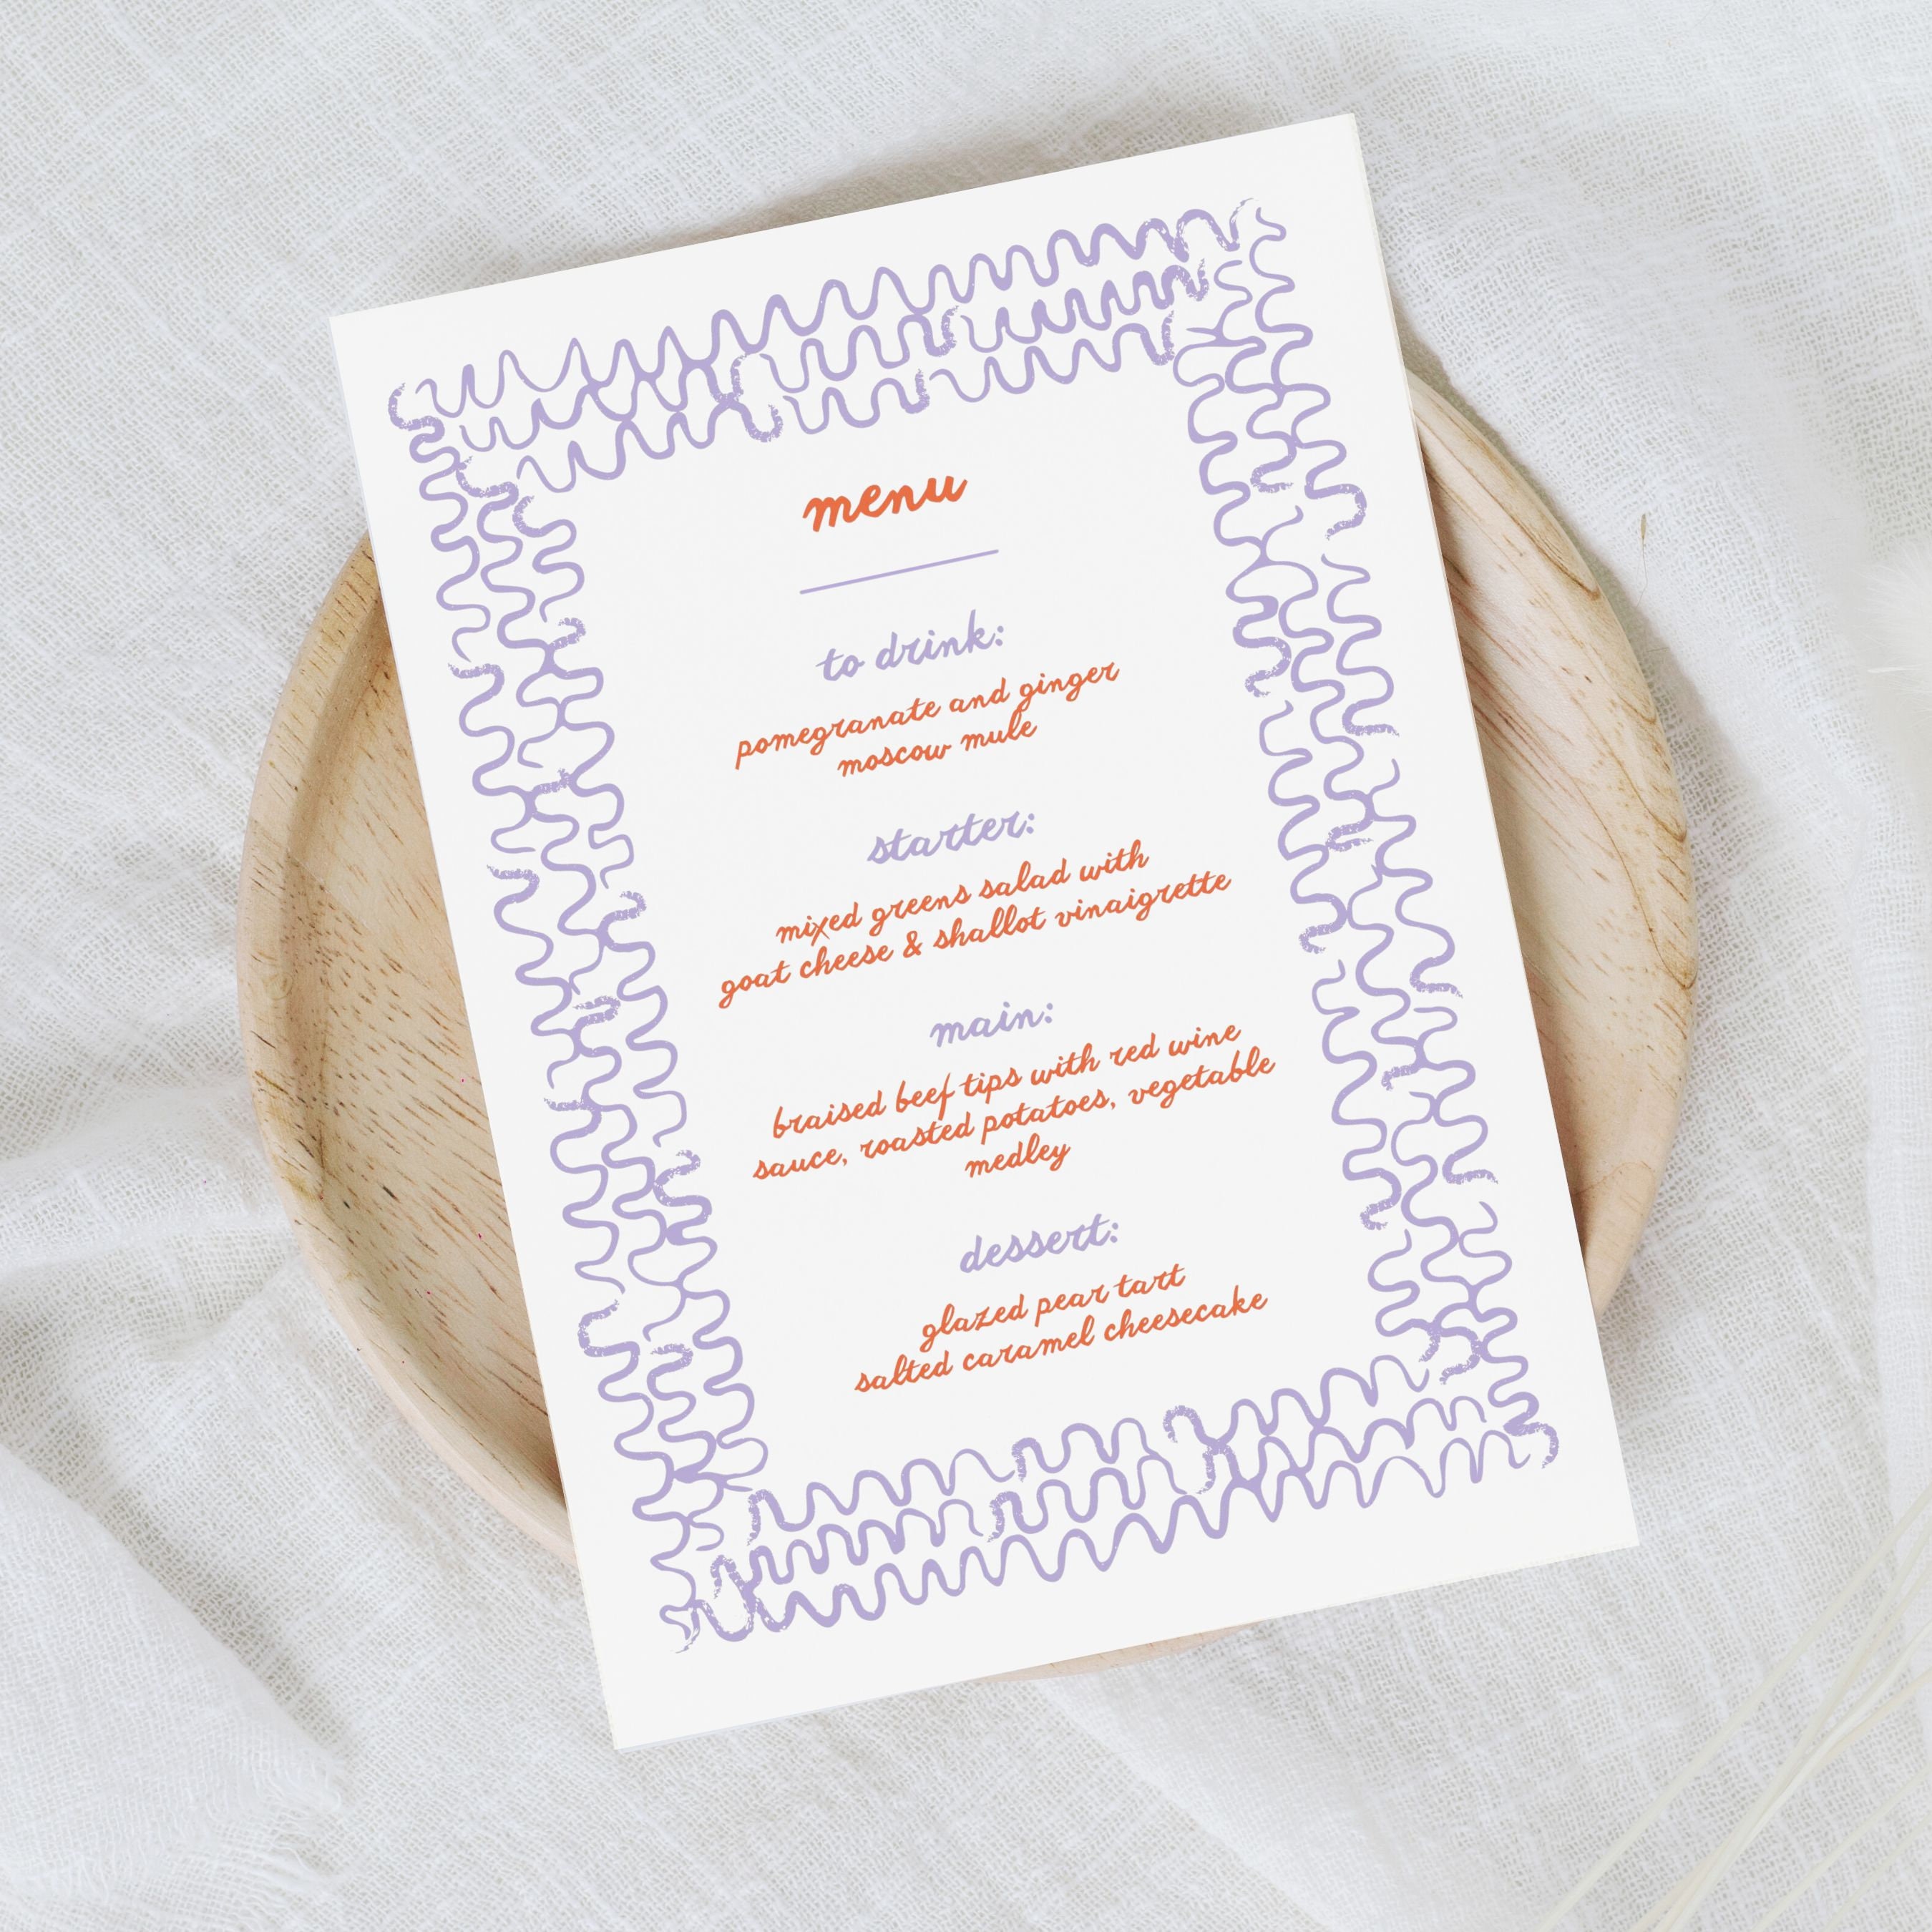 menu
to drink:
pomegranate and ginger
moscow mule
starter:
mixed greens salad with
goat cheese & shallot vinaigrette
main:
braised beef tips with red wine
sauce, roasted potatoes, vegetable
medley
dessert:
glazed pear tart
salted caramel cheesecake